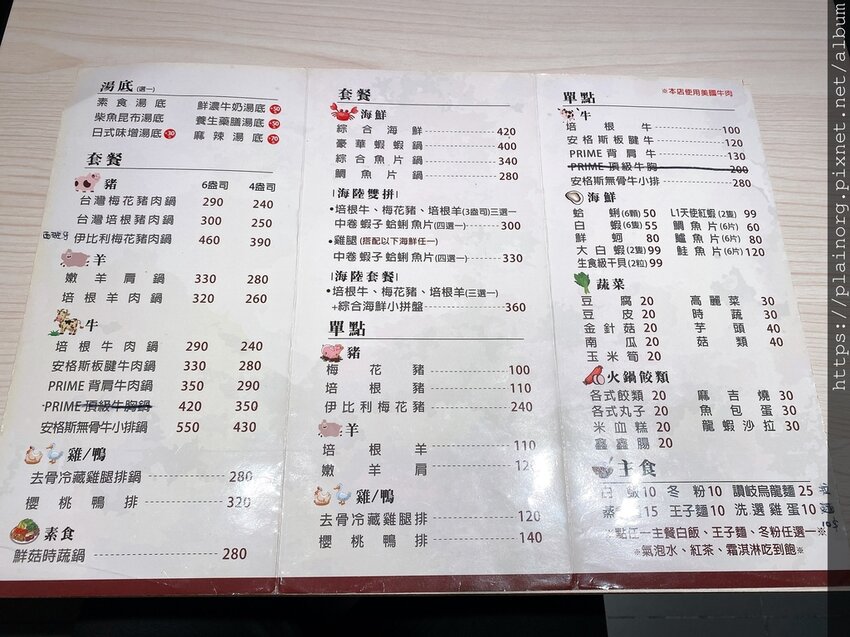 湯底(選一)
素食湯底 鮮濃牛奶湯底
柴魚昆布湯底 養生藥膳湯底
日式味增湯底 麻辣湯底
套餐
豬 6盎司 4盎司
台灣梅花豬肉鍋 290 240
台灣培根豬肉鍋 300 250
伊比利梅花豬肉鍋 460 390
羊
嫩羊肩鍋 330 280
培根羊肉鍋 320 260
牛
培根牛肉鍋 290 240
安格斯板腱牛肉鍋 330 280
PRIME背肩牛肉鍋 350 290
PRIME頂級牛胸鍋 420 350
安格斯無骨牛小排鍋 550 430
雞/鴨
去骨冷藏雞腿排鍋 280
櫻桃鴨排 320
素食
鮮菇時蔬鍋 280
套餐
海鮮
綜合海鮮 420
豪華蝦蝦鍋 400
綜合魚片鍋 340
鯛魚片鍋 280
|海陸雙拼|
•培根牛、梅花豬、培根羊(3盎司)三選一
中卷 蝦子 蛤蜊 魚片(四選一) 300
•雞腿(搭配以下海鮮任一)
中卷 蝦子 蛤蜊 魚片(四選一) 330
|海陸套餐|
•培根牛、梅花豬、培根羊(三選一)
+綜合海鮮小拼盤 360
單點
豬
梅花豬 100
培根豬 110
伊比利梅花豬 240
羊
培根羊 110
嫩羊肩
雞/鴨
去骨冷藏雞腿排 120
櫻桃鴨排 140
單點 ※本店使用美國牛肉
牛
培根牛 100
安格斯板腱牛 120
PRIME背肩牛 130
PRIME頂級牛胸 200
安格斯無骨牛小排 280
海鮮
蛤蜊(6顆) 50 L1天使紅蝦(2隻) 99
白蝦(6隻) 55 鯛魚片(6片) 60
鮮蚵 80 鱸魚片(6片) 80
大白蝦(2隻) 99 鮭魚片(6片) 120
生食級干貝(2粒) 99
蔬菜
豆腐 20 高麗菜 30
豆皮 20 時蔬 30
金針菇 20 芋頭 40
南瓜 20 菇類 40
玉米筍 20
火鍋餃類
各式餃類 20 麻吉燒 30
各式丸子 20 魚包蛋 30
米血糕 20 龍蝦沙拉 30
鑫鑫腸 20
主食
白飯 10 冬粉 10 讚岐烏龍麵 25
蒸 15 王子麵 10 洗選雞蛋 10
※點任一主餐白飯、王子麵、冬粉任選一※
※氣泡水、紅茶、霜淇淋吃到飽※
https://plainorg.pixnet.net/album